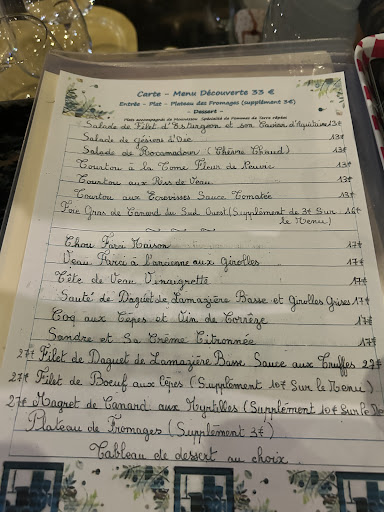 Carte - Menu Découverte 33 €
Entrée - Plat - Plateau des Fromages (supplément 3€)
- Dessert -
Plats accompagnés de Mounassou Spécialité de Pommes de Terre râpées
Salade de Filet d'Esturgeon et son Caviar d'Aquitaine 13€
Salade de Gésiers d'Oie 13€
Salade de Rocamadour (Chèvre Chaud) 13€
Tourtou à la Tome Fleur de Peuvic 13€
Tourtou aux Ris de Veau 13€
Tourtou aux Ecrevisses Sauce Tomatée 13€
Foie Gras de Canard du Sud Ouest (Supplément de 3€ Sur le Menu) 16€
Chou Farci Maison 17€
Veau Farci à l'ancienne aux Girolles 17€
Tête de Veau Vinaigrette 17€
Sauté de Daguet de Lamazière Basse et Girolles Grises 17€
Coq aux Cèpes et Vin de Corrèze 17€
Sandre et Sa Crème Citronnée 17€
27€ Filet de Daguet de Lamazière Basse Sauce aux Truffes 27€
27€ Filet de Boeuf aux Cèpes (Supplément 10€ Sur le Menu)
27€ Magret de Canard aux Myrtilles (Supplément 10€ Sur le
Plateau de Fromages (Supplément 3€)
Tableau de dessert au choix